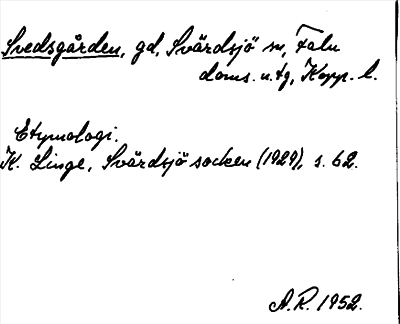 Svedsgården, gd, Svärdsjö sn, Falu
doms. o. tg, Kopp. l.
Etymologi.
K. Linge, Svärdsjö socken (1929), s. 62.
A.R. 1952.